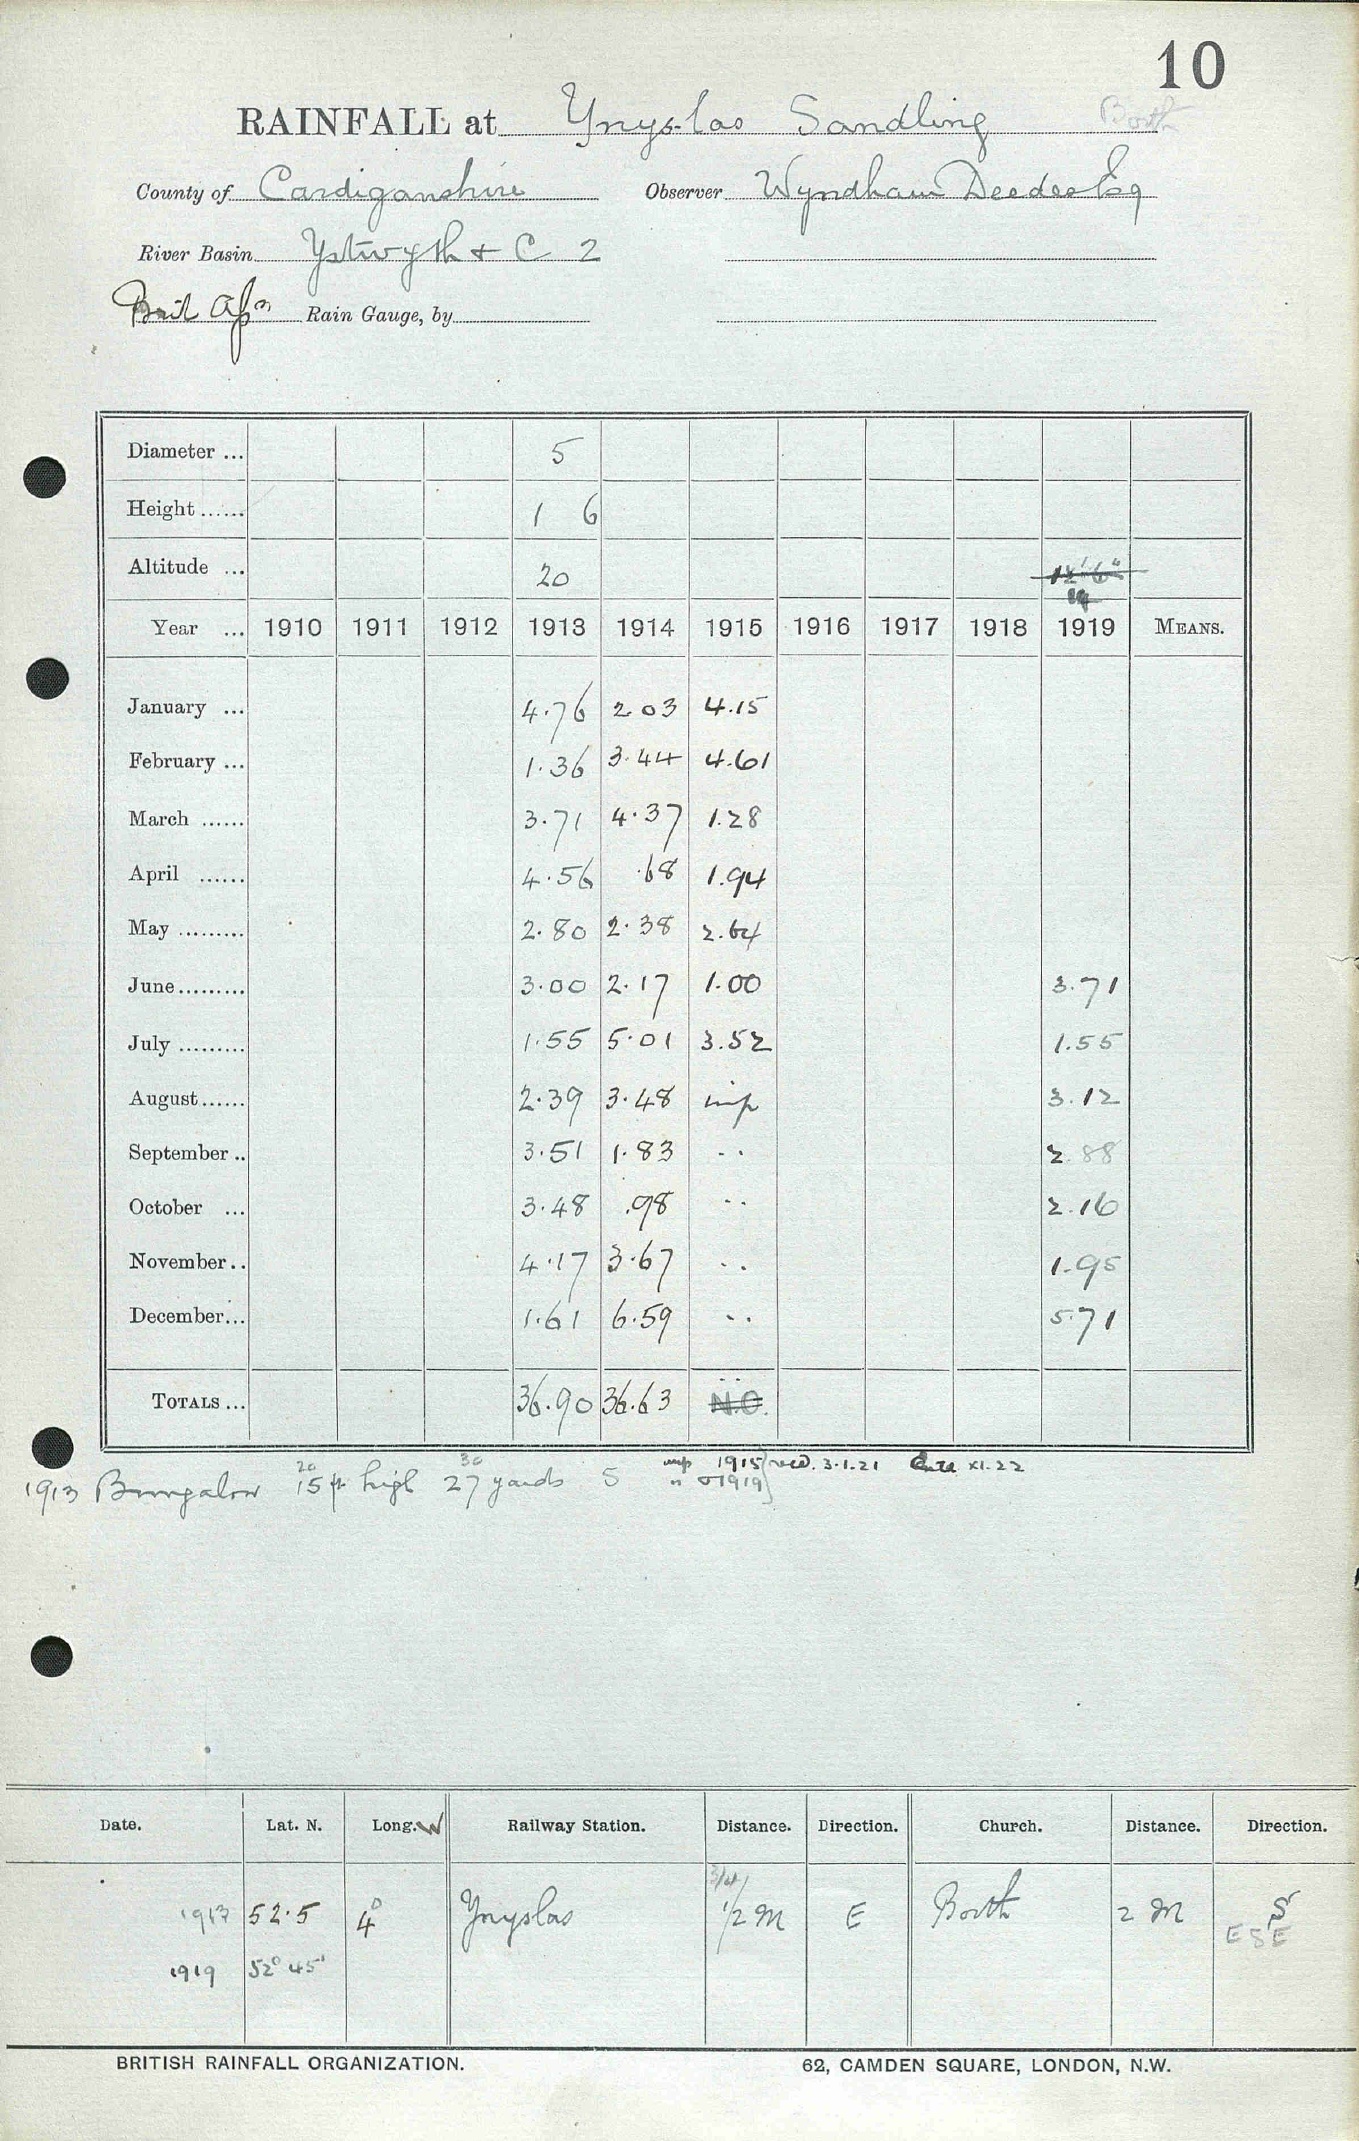 10
RAINFALL at Ynys-las Sandling Borth
County of Cardiganshire Observer Wyndham Deedes Esq
River Basin Ystwyth + C 2
Rain Gauge, by
Diameter ... 5
Height ...... 1 6
Altitude ... 20 12' 6"
Year ... 1910 1911 1912 1913 1914 1915 1916 1917 1918 1919 MEANS.
January ... 4.76 2.03 4.15
February ... 1.36 3.44 4.61
March ...... 3.71 4.37 1.28
April ...... 4.56 .68 1.94
May ......... 2.80 2.38 2.64
June ......... 3.00 2.17 1.00 3.71
July ......... 1.55 5.01 3.52 1.55
August ...... 2.39 3.48 imp 3.12
September .. 3.51 1.83 .. 2.88
October ... 3.48 .98 .. 2.16
November .. 4.17 3.67 .. 1.95
December ... 1.61 6.59 .. 5.71
TOTALS ... 36.90 36.63 .. N.O.
20 30 imp 1915 recd. 3.1.21 XI.22
1913 Bungalow 15 ft high 27 yards 5 " 1919
Date. Lat. N. Long. W Railway Station. Distance. Direction. Church. Distance. Direction.
3/4
1913 52.5 4° Ynyslas 1/2 M E Borth 2 M S
ESE
1919 52° 45'
BRITISH RAINFALL ORGANIZATION. 62, CAMDEN SQUARE, LONDON, N.W.